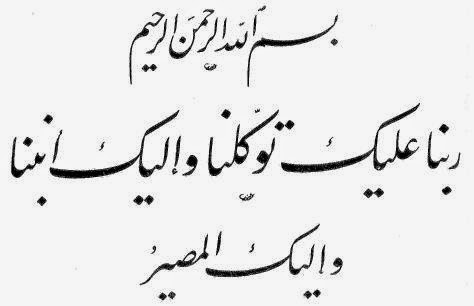 بسم الله الرحمن الرحيم
ربنا عليك توكلنا وإليك انبنا
وإليك المصير